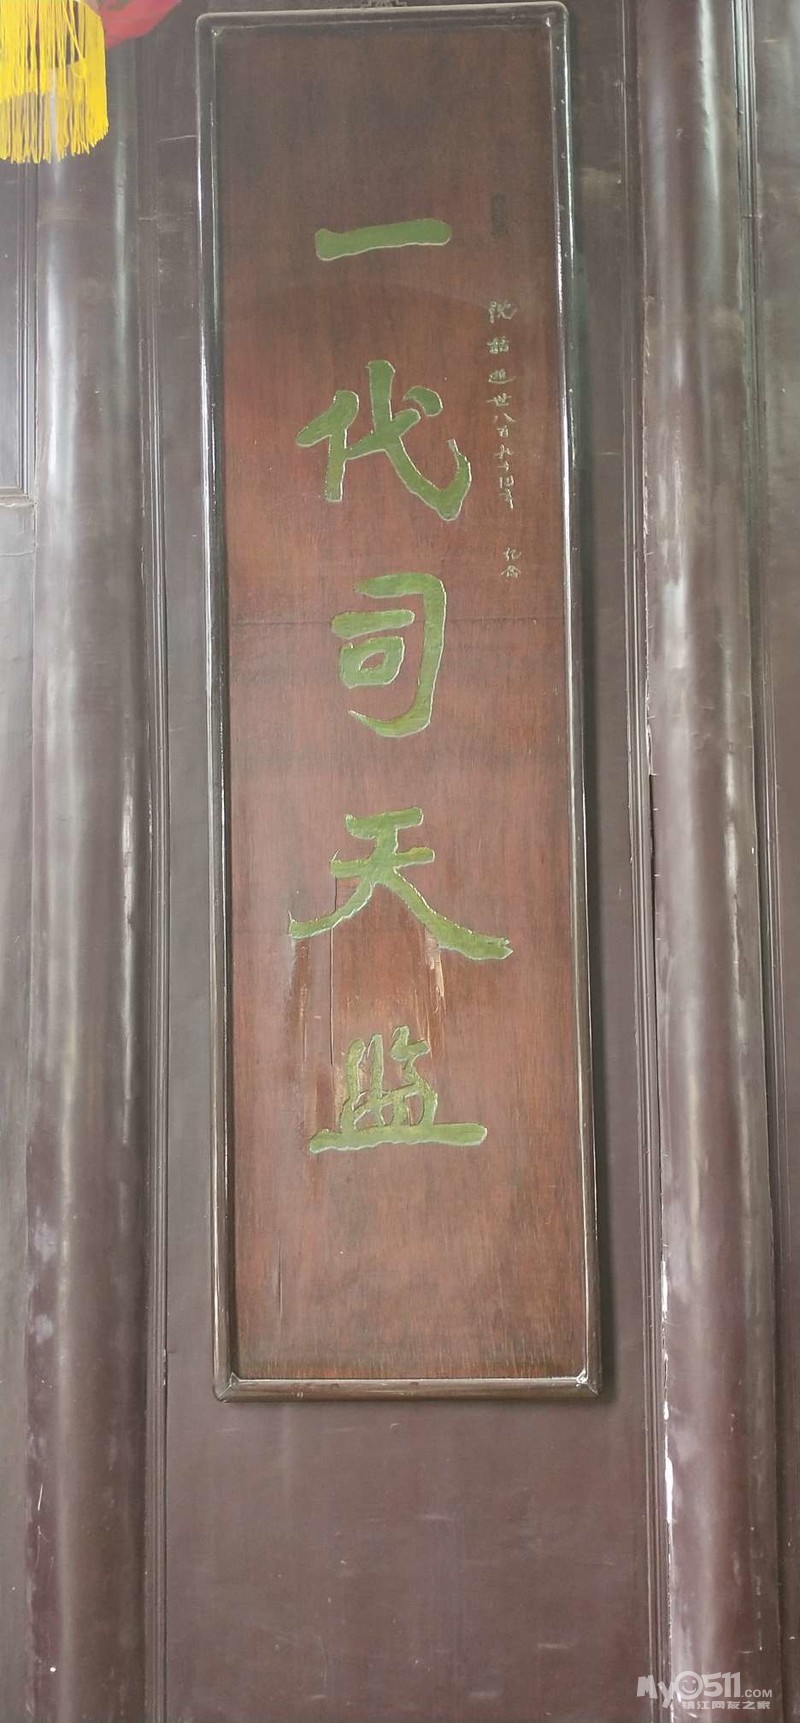 沈括逝世八百九十四年 纪念
一代司天监
My0511.COM
镇江网友之家